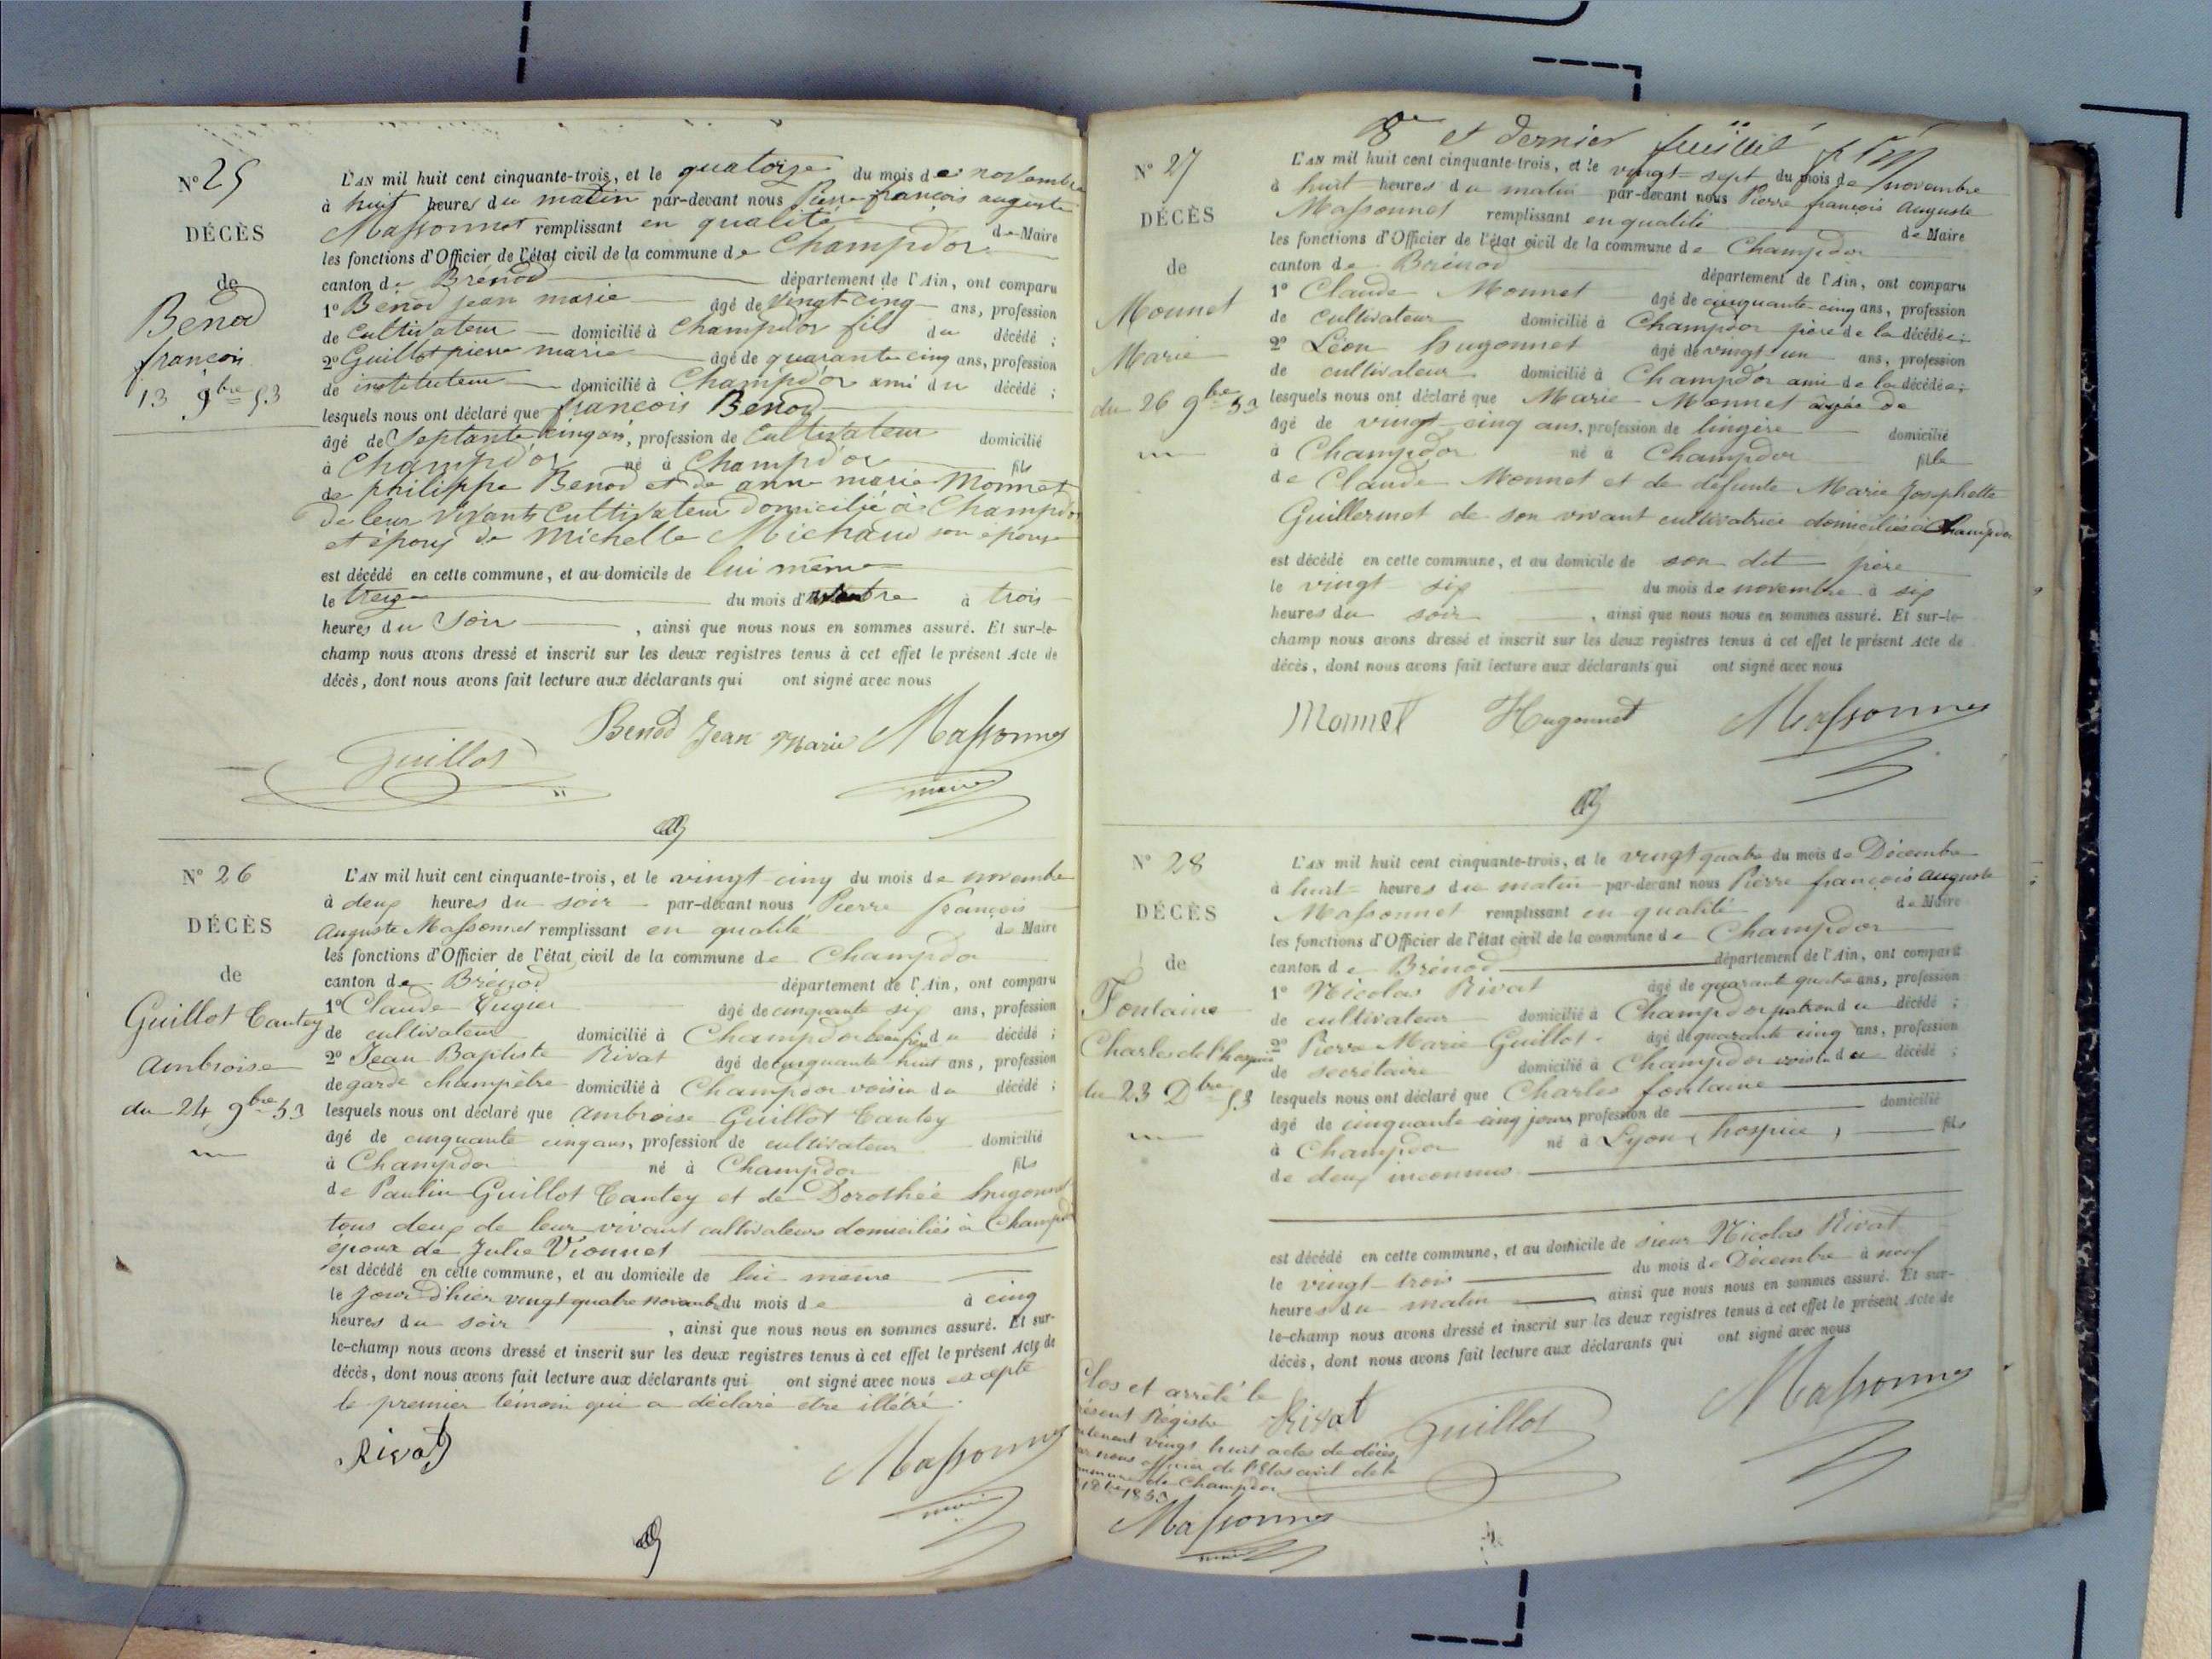 N° 25
DÉCÈS
de
Benod
françois
13 9bre 53
L'AN mil huit cent cinquante-trois, et le quatorze du mois de novembre
à huit heures du matin par-devant nous Pierre françois auguste
Massonnet remplissant en qualité de Maire
les fonctions d'Officier de l'état civil de la commune de Champdor
canton de Brénod département de l'Ain, ont comparu
1° Bénod jean marie âgé de Vingt-cinq ans, profession
de Cultivateur domicilié à Champdor fils du décédé ;
2° Guillot pierre marie âgé de quarante cinq ans, profession
de instituteur domicilié à Champdor ami du décédé ;
lesquels nous ont déclaré que françois Benod
âgé de Septante cinq ans, profession de Cultivateur domicilié
à Champdor né à Champdor fils
de philippe Benod et de anne marie Monnet
de leur vivants Cultivateur domicilié à Champdor
et époux de Michelle Michaud son épouse
est décédé en cette commune, et au domicile de lui même
le treize du mois d à trois
heures du Soir , ainsi que nous nous en sommes assuré. Et sur-le-
champ nous avons dressé et inscrit sur les deux registres tenus à cet effet le présent Acte de
décès, dont nous avons fait lecture aux déclarants qui ont signé avec nous
Benod Jean Marie Massonnet
Guillot maire
N° 26
DÉCÈS
de
Guillot Cantey
Ambroise
du 24 9bre 53
L'AN mil huit cent cinquante-trois, et le vingt-cinq du mois de novembre
à deux heures du soir par-devant nous Pierre françois
Auguste Massonnet remplissant en qualité de Maire
les fonctions d'Officier de l'état civil de la commune de Champdor
canton de Brénod département de l'Ain, ont comparu
1° Claude âgé de cinquante six ans, profession
de cultivateur domicilié à Champdor beau frère du décédé ;
2° Jean Baptiste Rivat âgé de cinquante huit ans, profession
de garde champêtre domicilié à Champdor voisin du décédé ;
lesquels nous ont déclaré que Ambroise Guillot Cantey
âgé de cinquante cinq ans, profession de cultivateur domicilié
à Champdor né à Champdor fils
de Paulin Guillot Cantey et de Dorothée hugonnet
tous deux de leur vivant cultivateurs domiciliés à Champdor
époux de Julie Vionnet
est décédé en cette commune, et au domicile de lui même
le jour d'hier vingt quatre novembre du mois de à cinq
heures du soir , ainsi que nous nous en sommes assuré. Et sur-
le-champ nous avons dressé et inscrit sur les deux registres tenus à cet effet le présent Acte de
décès, dont nous avons fait lecture aux déclarants qui ont signé avec nous excepté
le premier témoin qui a déclaré etre illétré.
Rivat Massonnet
maire
8e et dernier feuillet
N° 27
DÉCÈS
de
Monnet
Marie
du 26 9bre 53
L'AN mil huit cent cinquante-trois, et le vingt-sept du mois de novembre
à huit heures du matin par-devant nous Pierre françois Auguste
Massonnet remplissant en qualité de Maire
les fonctions d'Officier de l'état civil de la commune de Champdor
canton de Brénod département de l'Ain, ont comparu
1° Claude Monnet âgé de cinquante cinq ans, profession
de cultivateur domicilié à Champdor père de la décédée ;
2° Léon hugonnet âgé de vingt-un ans, profession
de cultivateur domicilié à Champdor ami de la décédée ;
lesquels nous ont déclaré que Marie Monnet âgée de
âgé de vingt-cinq ans, profession de lingère domicilié
à Champdor né à Champdor fille
de Claude Monnet et de défunte Marie Josephette
Guillermet de son vivant cultivatrice domiciliée à Champdor
est décédé en cette commune, et au domicile de son dit père
le vingt six du mois de novembre à six
heures du soir , ainsi que nous nous en sommes assuré. Et sur-le-
champ nous avons dressé et inscrit sur les deux registres tenus à cet effet le présent Acte de
décès, dont nous avons fait lecture aux déclarants qui ont signé avec nous
Monnet Hugonnet Massonnet
N° 28
DÉCÈS
de
Fontaine
Charles de l'hospice
du 23 Dbre 53
L'AN mil huit cent cinquante-trois, et le vingt quatre du mois de Décembre
à huit heures du matin par-devant nous Pierre françois Auguste
Massonnet remplissant en qualité de Maire
les fonctions d'Officier de l'état civil de la commune de Champdor
canton de Brénod département de l'Ain, ont comparu
1° Nicolas Rivat âgé de quarante quatre ans, profession
de cultivateur domicilié à Champdor patron du décédé ;
2° Pierre Marie Guillot âgé de quarante cinq ans, profession
de secrétaire domicilié à Champdor voisin du décédé ;
lesquels nous ont déclaré que Charles fontaine
âgé de cinquante-cinq jours, profession de domicilié
à Champdor né à Lyon (hospice) fils
de deux inconnus
est décédé en cette commune, et au domicile de sieur Nicolas Rivat
le vingt-trois du mois de Décembre à neuf
heures du matin , ainsi que nous nous en sommes assuré. Et sur-
le-champ nous avons dressé et inscrit sur les deux registres tenus à cet effet le présent Acte de
décès, dont nous avons fait lecture aux déclarants qui ont signé avec nous
Rivat Guillot Massonnet
Clos et arrêté le
présent Registre
contenant vingt huit actes de décès
par nous officier de l'Etat civil de la
commune de Champdor
1853
Massonnet
maire